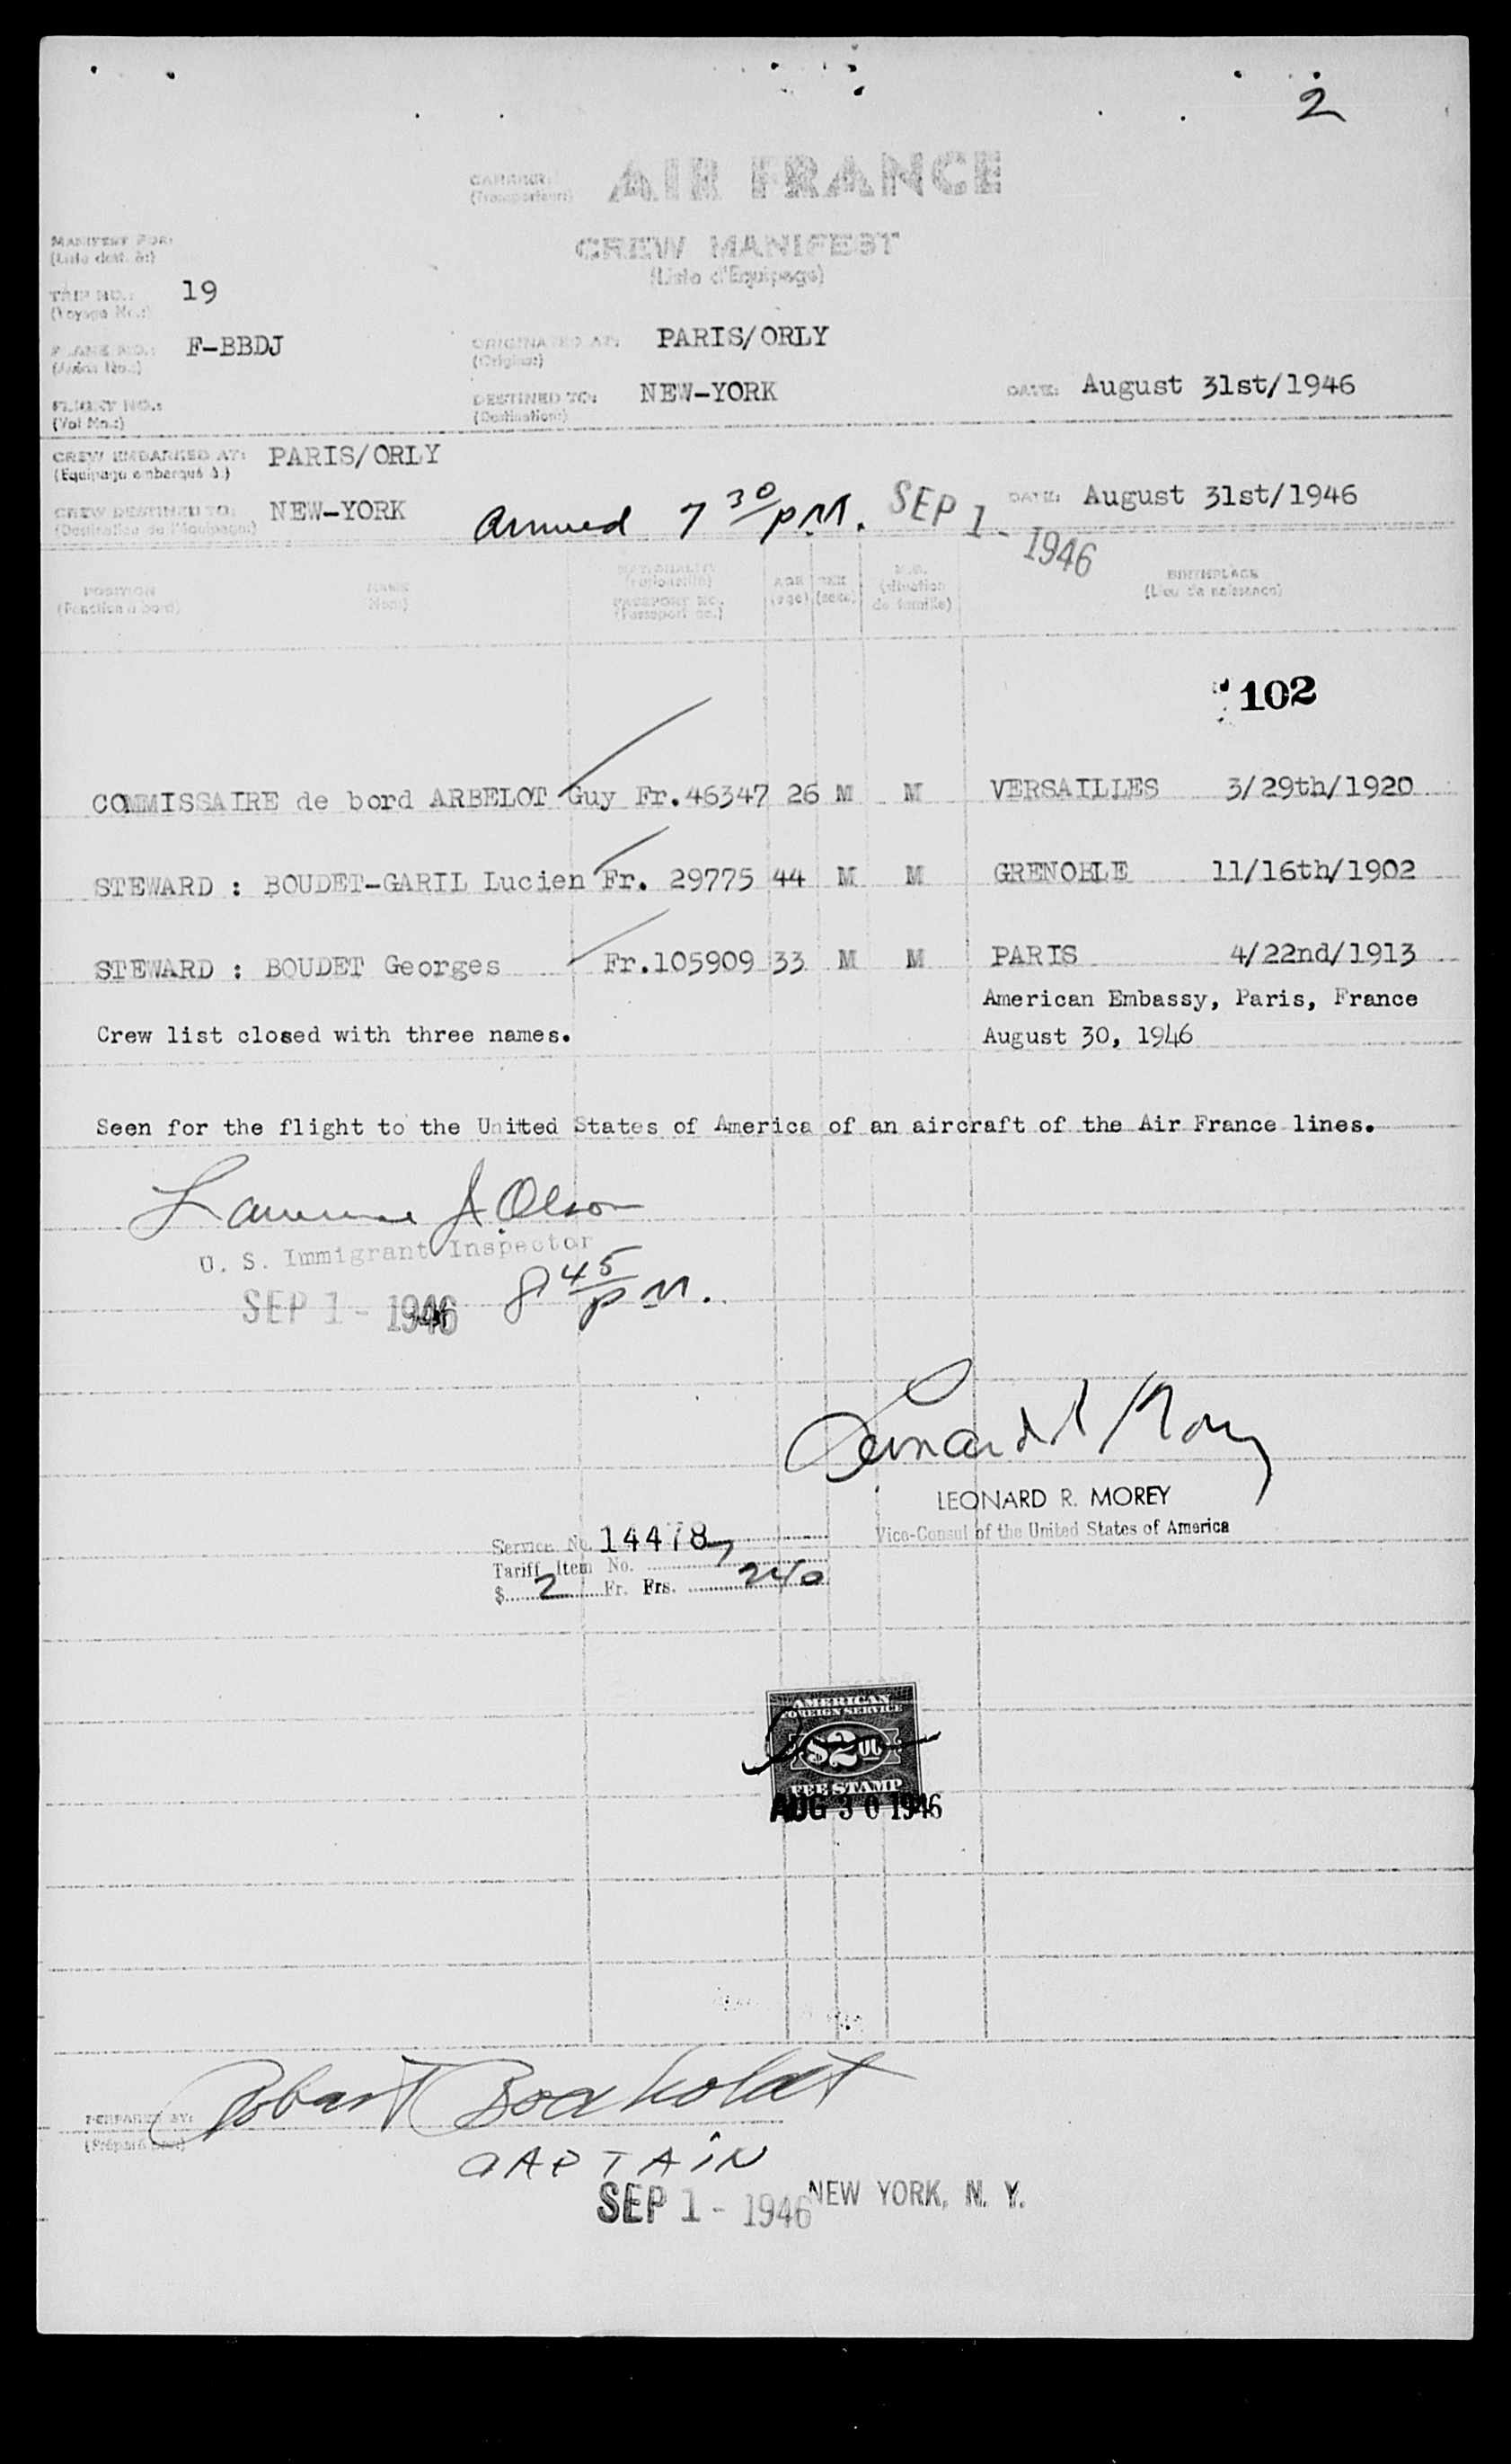 2
CARRIER: AIR FRANCE
(Transporteur:)
CREW MANIFEST
(Liste d'Equipage)
MANIFEST FOR:
(Liste dest. à:)
TRIP NO.: 19
(Voyage No.:)
PLANE NO.: F-BBDJ
(Avion No.:)
ORIGINATED AT: PARIS/ORLY
(Origine:)
FLIGHT NO.:
(Vol No.:)
DESTINED TO: NEW-YORK
(Destination:)
DATE: August 31st/1946
CREW EMBARKED AT: PARIS/ORLY
(Equipage embarqué à:)
CREW DESTINED TO: NEW-YORK
(Destination de l'équipage:)
Arrived 7 30 PM. SEP 1 - 1946
DATE: August 31st/1946
POSITION
(Fonction à bord)
NAME
(Nom)
NATIONALITY
(nationalité)
PASSPORT NO.
(Passeport no.)
AGE
(age)
SEX
(sexe)
(situation
de famille)
BIRTHPLACE
(Lieu de naissance)
102
COMMISSAIRE de bord ARBELOT Guy Fr.46347 26 M M VERSAILLES 3/29th/1920
STEWARD : BOUDET-GARIL Lucien Fr. 29775 44 M M GRENOBLE 11/16th/1902
STEWARD : BOUDET Georges Fr.105909 33 M M PARIS 4/22nd/1913
American Embassy, Paris, France
Crew list closed with three names. August 30, 1946
Seen for the flight to the United States of America of an aircraft of the Air France lines.
Lawrence J. Olson
U. S. Immigrant Inspector
SEP 1 - 1946 8 45 PM.
Leonard R Morey
LEONARD R. MOREY
Vice-Consul of the United States of America
Service No. 14478
Tariff Item No. 7
$ 2 Fr. Frs. 240
AMERICAN
FOREIGN SERVICE
$2.00
FEE STAMP
AUG 30 1946
PREPARED BY: Robert
(Préparé par:)
CAPTAIN
SEP 1 - 1946 NEW YORK, N. Y.